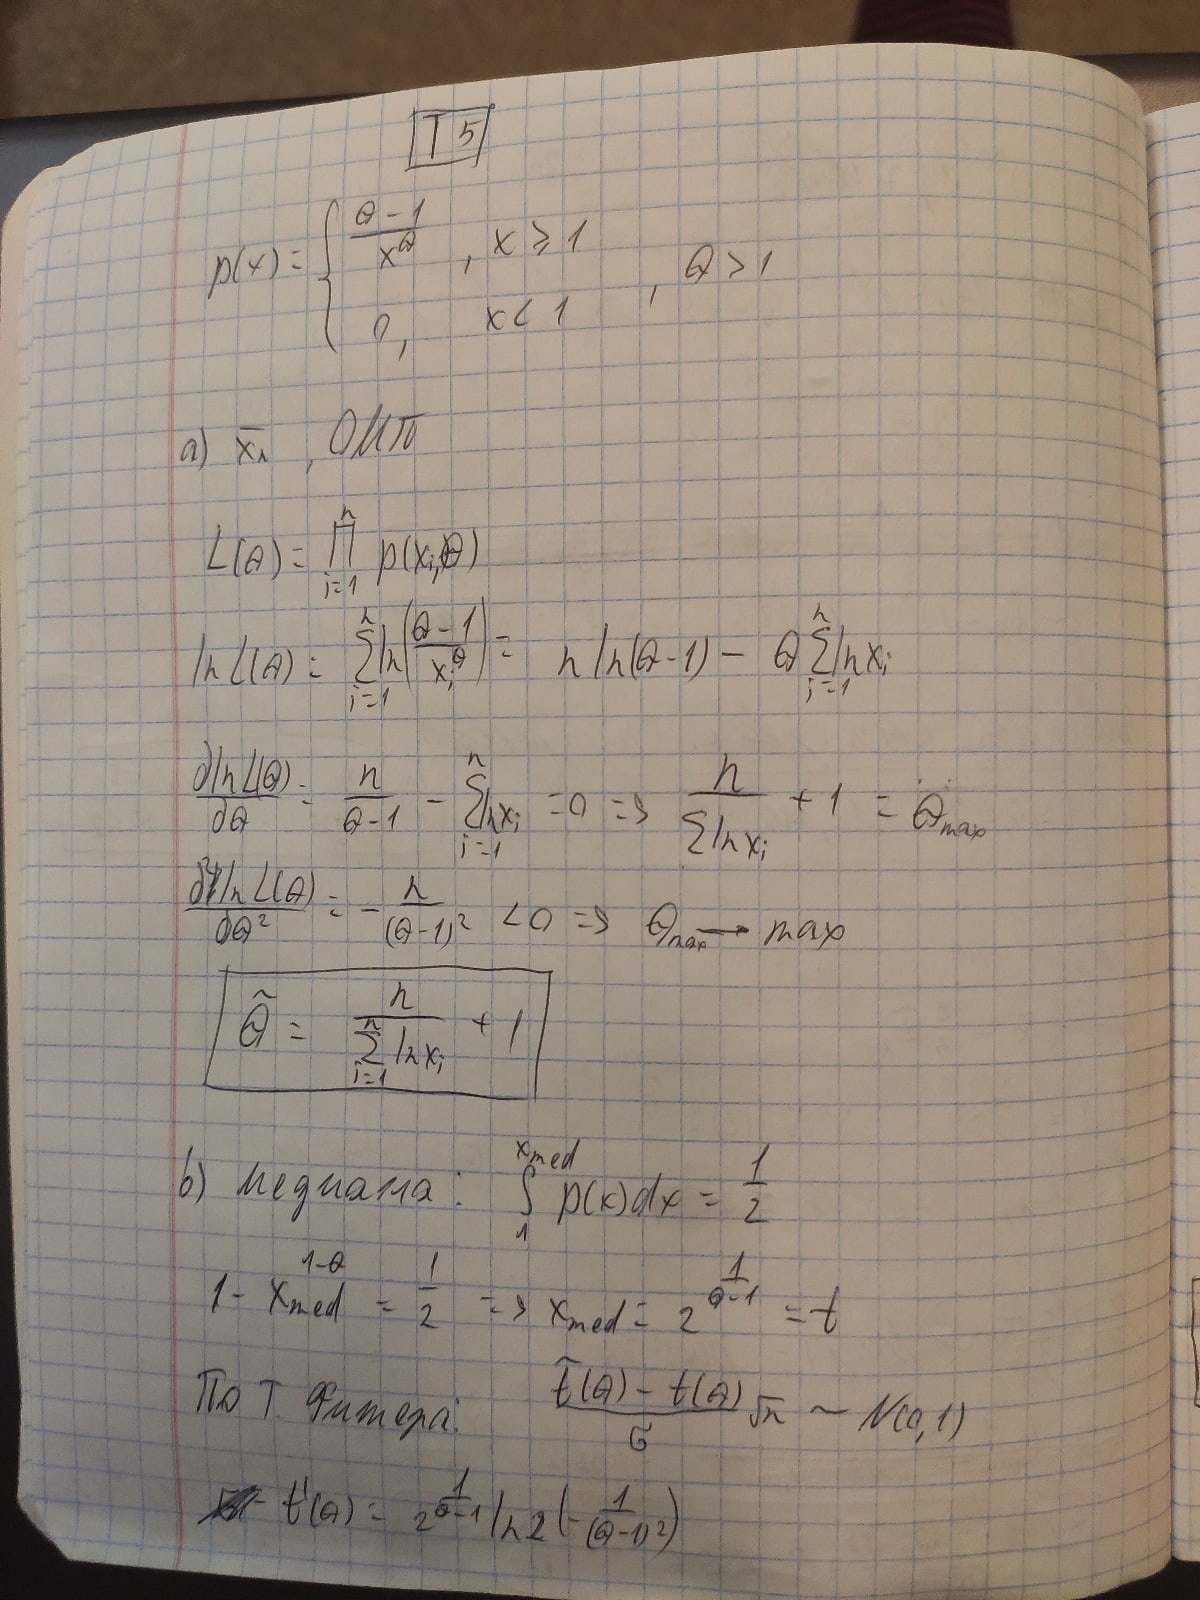 T5
p(x) = { (θ-1)/x^θ , x ≥ 1
0, x < 1 , θ > 1
a) x̄ₙ , ОМП
L(θ) = ∏_{i=1}^{n} p(xᵢ,θ)
ln L(θ) = ∑_{i=1}^{n} ln((θ-1)/xᵢ^θ) = n ln(θ-1) - θ ∑_{i=1}^{n} ln xᵢ
∂ln L(θ)/∂θ = n/(θ-1) - ∑_{i=1}^{n} ln xᵢ = 0 => n/(∑ ln xᵢ) + 1 = θ_max
∂² ln L(θ)/∂θ² = - n/(θ-1)² < 0 => θ_max → max
θ̃ = n/(∑_{i=1}^{n} ln xᵢ) + 1
b) медиана: ∫_1^{x_med} p(x)dx = 1/2
1 - x_med^{1-θ} = 1/2 => x_med = 2^{1/(θ-1)} = t
По т. Фишера: (t̃(θ) - t(θ))/σ √n ~ N(0,1)
t'(θ) = 2^{1/(θ-1)} ln2 (-1/(θ-1)²)